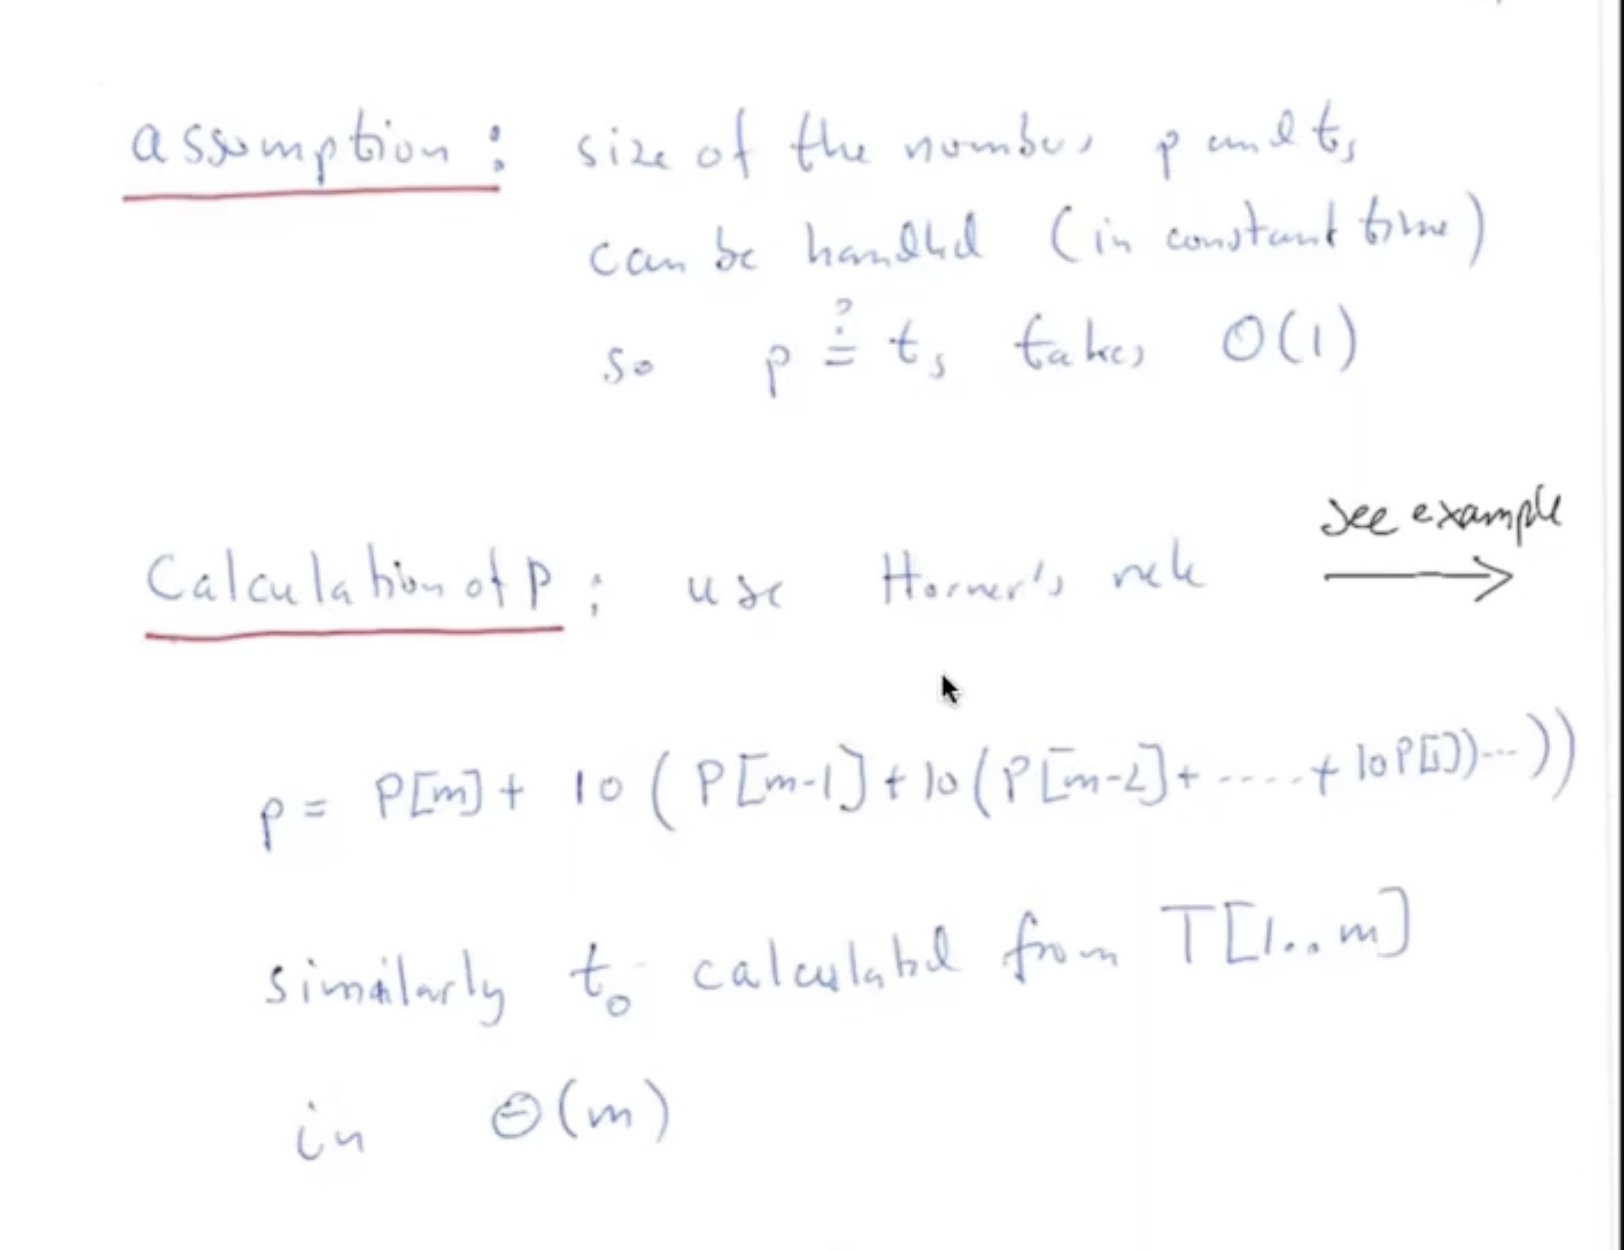 assumption: size of the numbers p and ts
can be handled (in constant time)
so p ≟ ts takes O(1)
see example
Calculation of p: use Horner's rule →
p = P[m] + 10 (P[m-1] + 10 (P[m-2] + ..... + 10P[1])...))
similarly t₀ calculated from T[1..m]
in Θ(m)